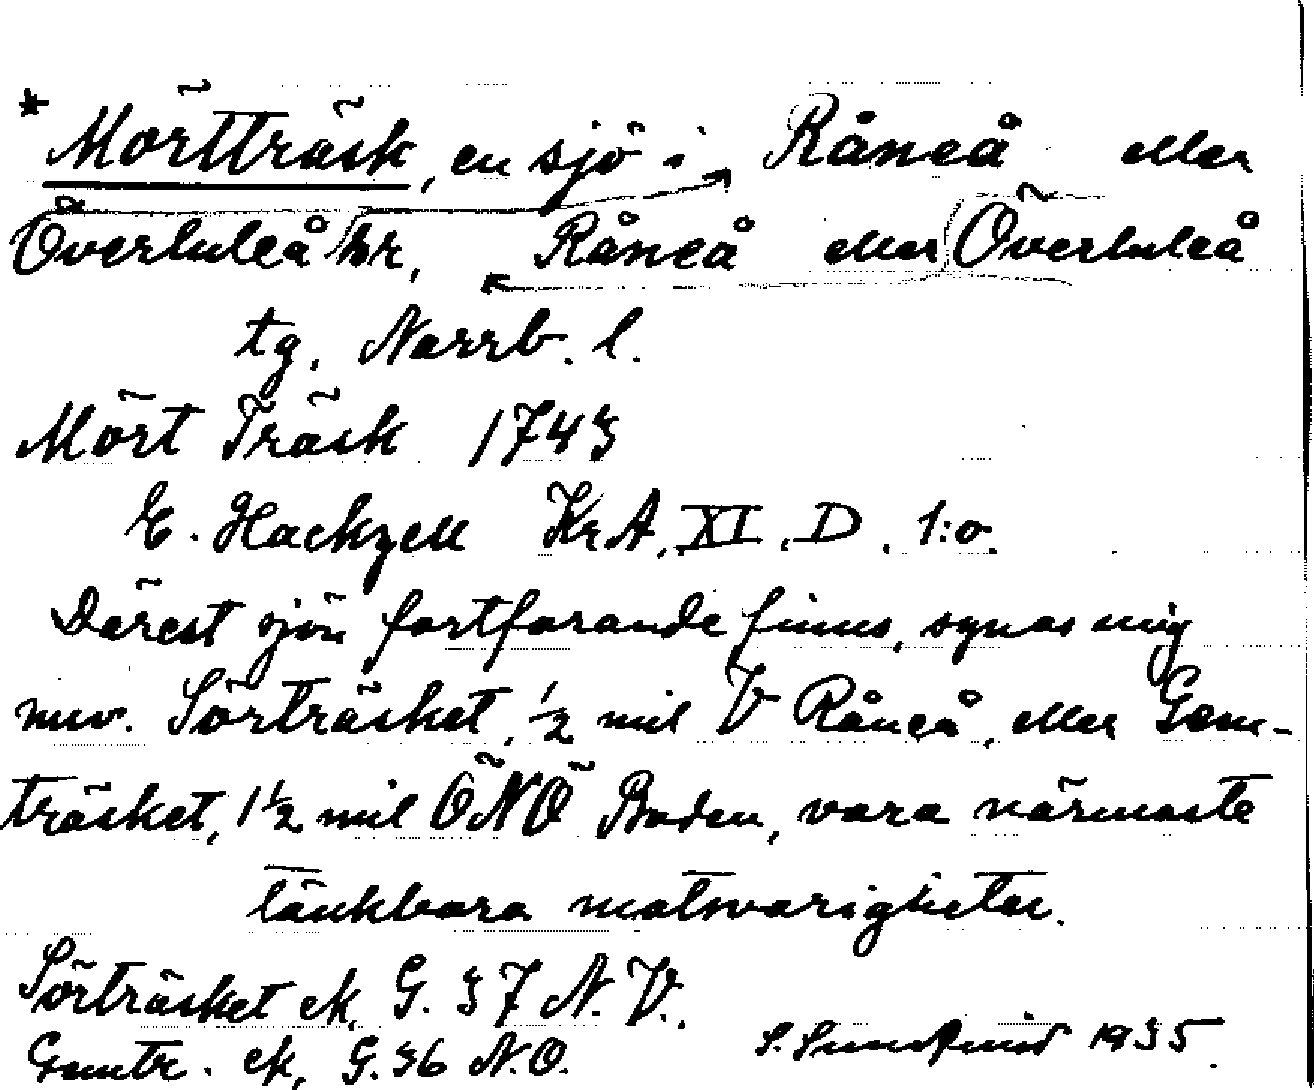 * Mörtträsk, en sjö i Råneå eller
Överluleå snr, Råneå eller Överluleå
tg, Norrb. l.
Mört Träsk 1743
E. Hackzell KrA, XI, D, 1:o.
Därest sjön fortfarande finns, synas mig
nuv. Sörträsket, ½ mil V Råneå, eller Gem-
träsket, 1½ mil ÖNÖ Boden, vara närmaste
tänkbara motsvarigheter.
Sörträsket ek, G. 37 N.V.
Gemtr. ek, G. 36 N.O.
S. Sundqvist 1935.